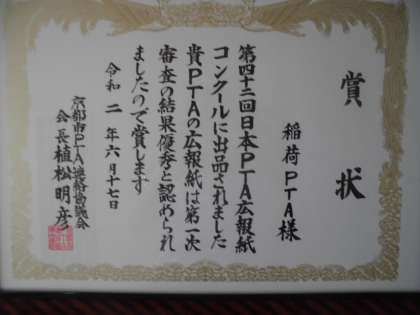 賞状
稲荷PTA様
第四十二回日本PTA広報紙
コンクールに出品されました
貴PTAの広報紙は第一次
審査の結果優秀と認められ
ましたので賞します
令和二年六月十七日
京都市PTA連絡協議会
会長植松明彦